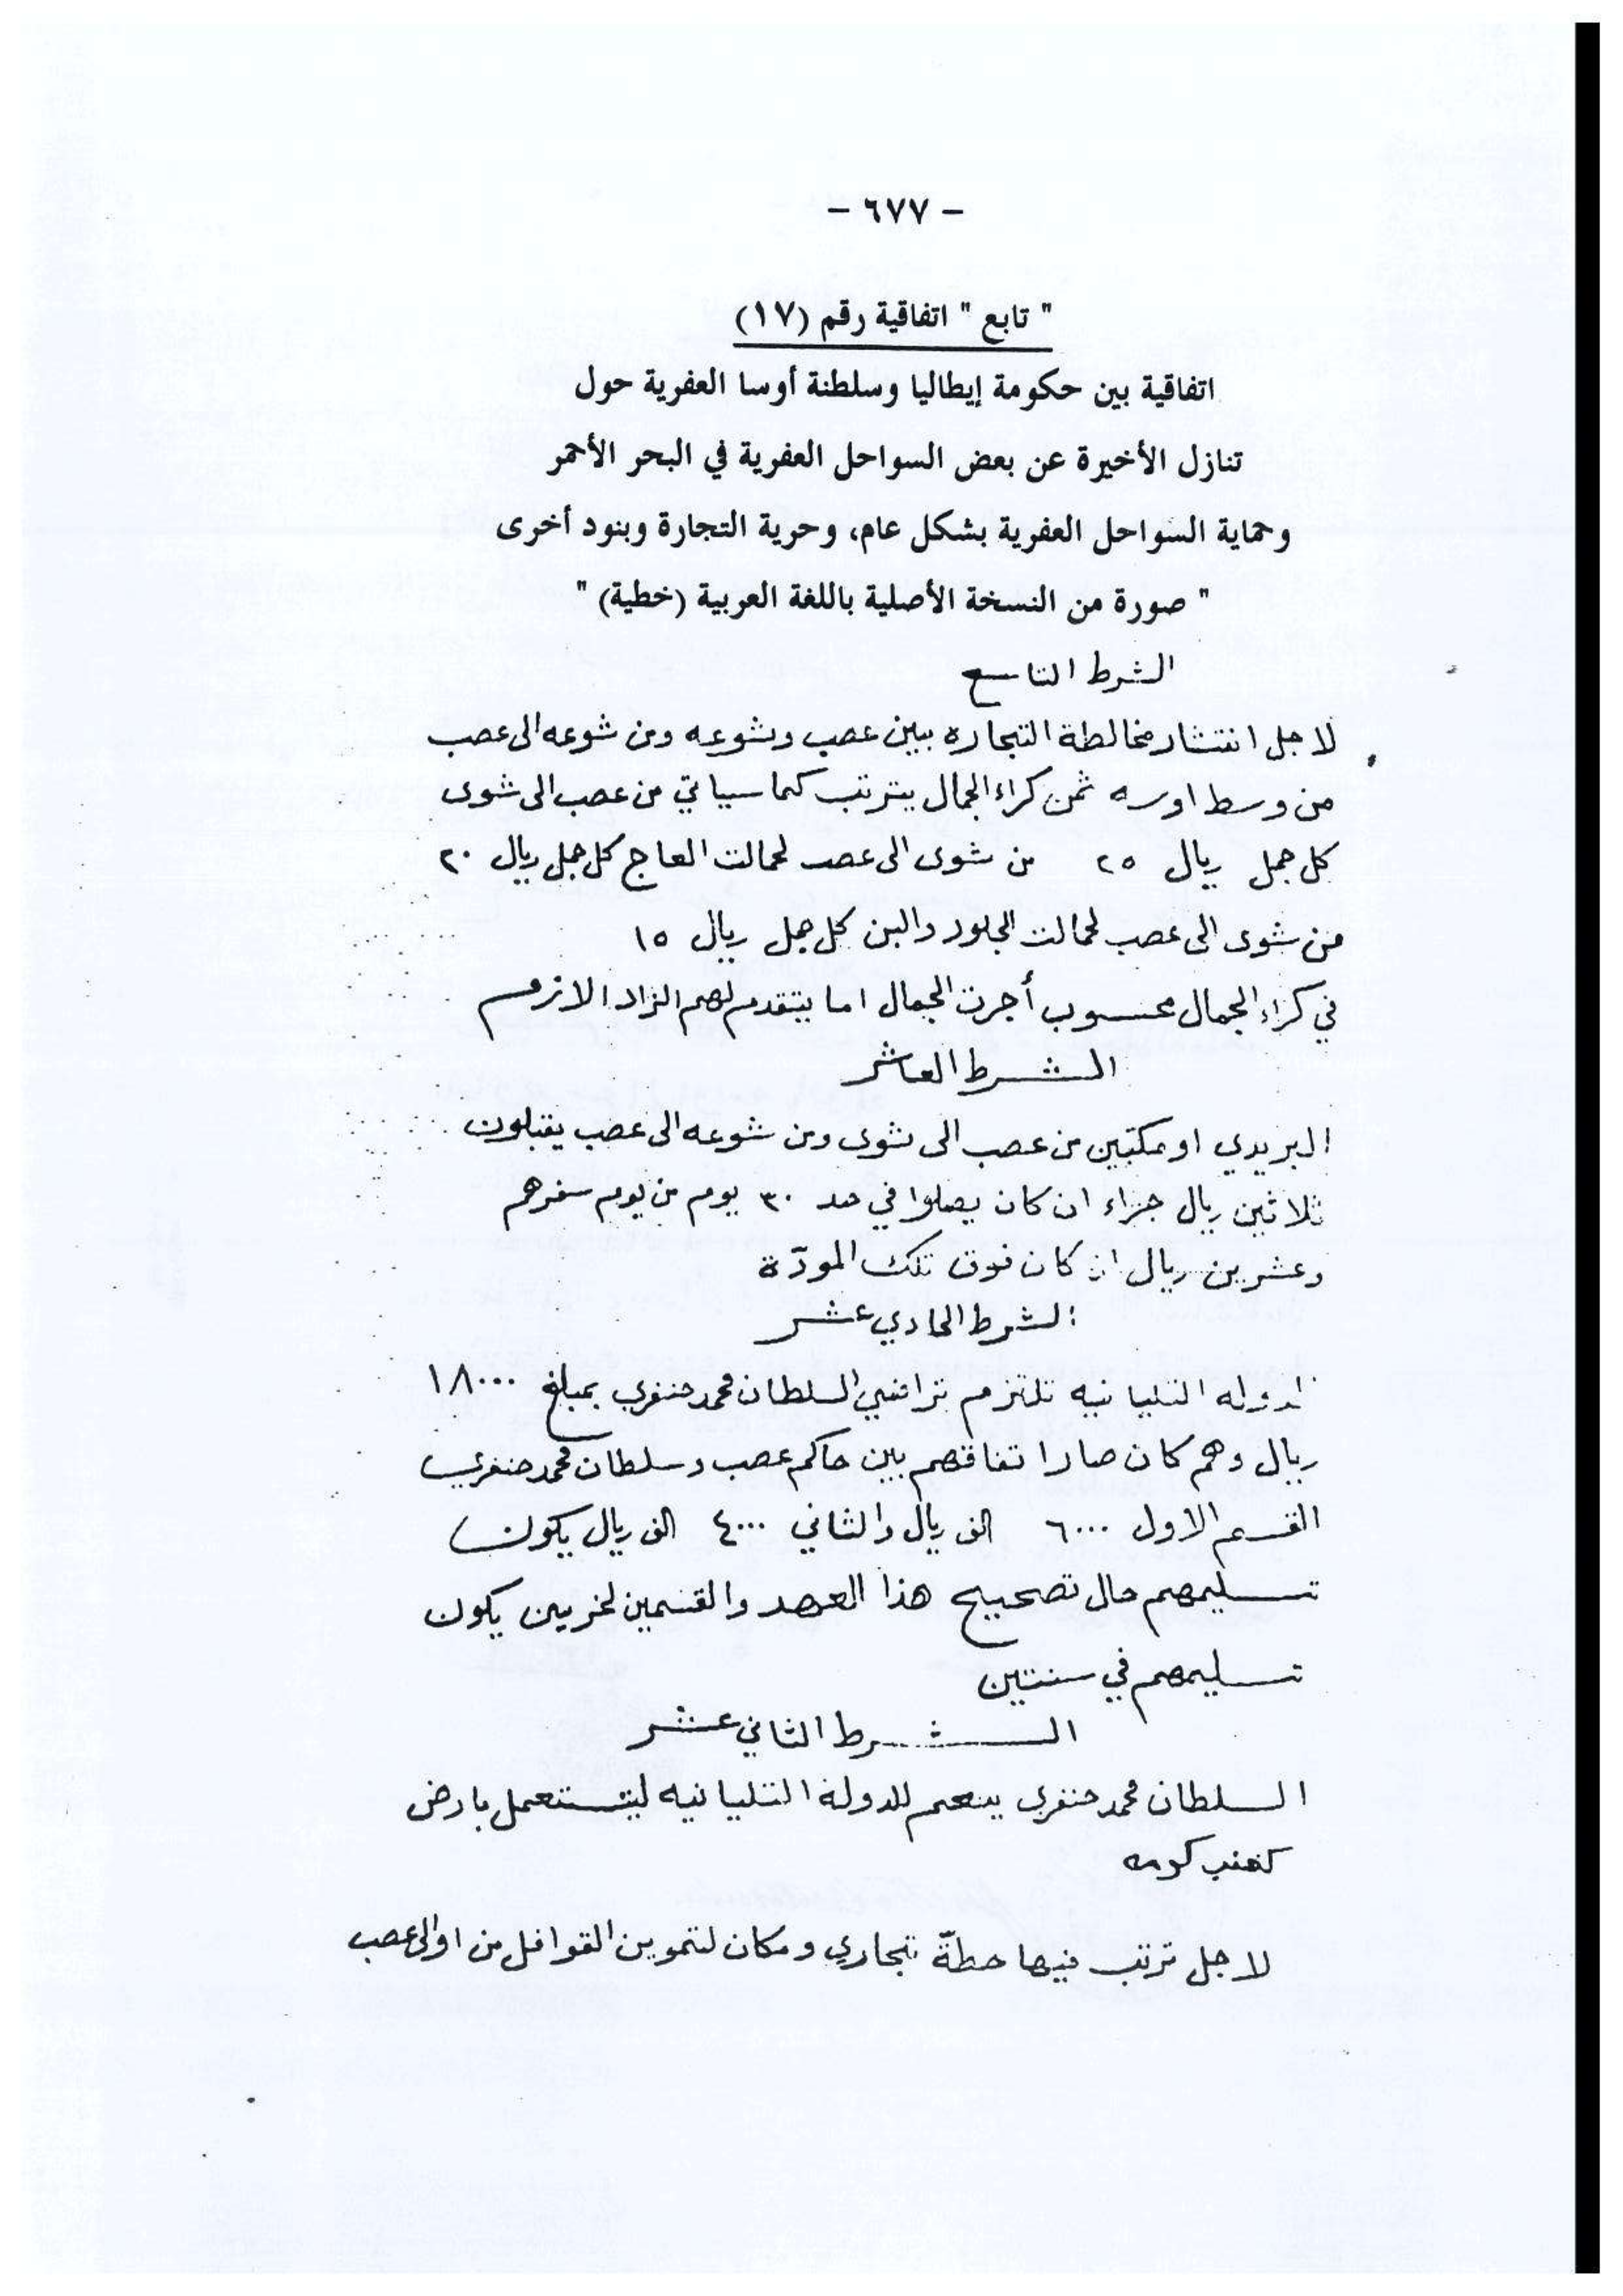 - ٦٧٧ -
" تابع " اتفاقية رقم (١٧)
اتفاقية بين حكومة إيطاليا وسلطنة أوسا العفرية حول
تنازل الأخيرة عن بعض السواحل العفرية في البحر الأحمر
وحماية السواحل العفرية بشكل عام، وحرية التجارة وبنود أخرى
" صورة من النسخة الأصلية باللغة العربية (خطية) "
الشرط التاسع
لاجل انتشار مخالطة التجاره بين عصب وشوعه ومن شوعه الى عصب
من وسط اوسه ثمن كراء الجمال يترتب كما سياتي من عصب الى شوى
كل جمل ريال ٢٥ من شوى الى عصب لحمالت العاج كل جمل ريال ٢٠
من شوى الى عصب لحمالت الجلود والبن كل جمل ريال ١٥
في كراء الجمال محسوب أجرت الجمال اما يتقدم لهم الزاد الازم
الشرط العاشر
البريدي او مكتبين من عصب الى شوى ومن شوعه الى عصب يقبلون
ثلاثين ريال جزاء ان كان يصلوا في حد ٣٠ يوم من يوم سفرهم
وعشرين ريال ان كان فوق تلك المودّة
الشرط الحادي عشر
الدوله التليانيه تلتزم تراضي السلطان محمد حنفري بمبلغ ١٨٠٠٠
ريال وهم كان صار اتفاقهم بين حاكم عصب وسلطان محمد حنفري
القسم الاول ٦٠٠٠ الف ريال والثاني ٤٠٠٠ الف ريال يكون
تسليمهم حال تصحيح هذا العهد والقسمين لخريين يكون
تسليمهم في سنتين
الشرط الثاني عشر
السلطان محمد حنفري ينعم للدولة التليانيه ليتستعمل بارض
لاجل ترتب فيها حطّة تجاري ومكان لتموين القوافل من او الى عصب